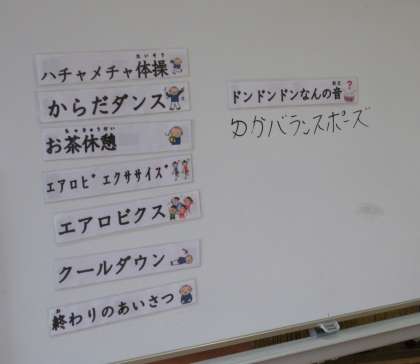 ハチャメチャ体操
からだダンス
お茶休憩
エアロビ エクササイズ
エアロビクス
クールダウン
終わりのあいさつ
ドンドンドンなんの音?
ゆかバランスポーズ